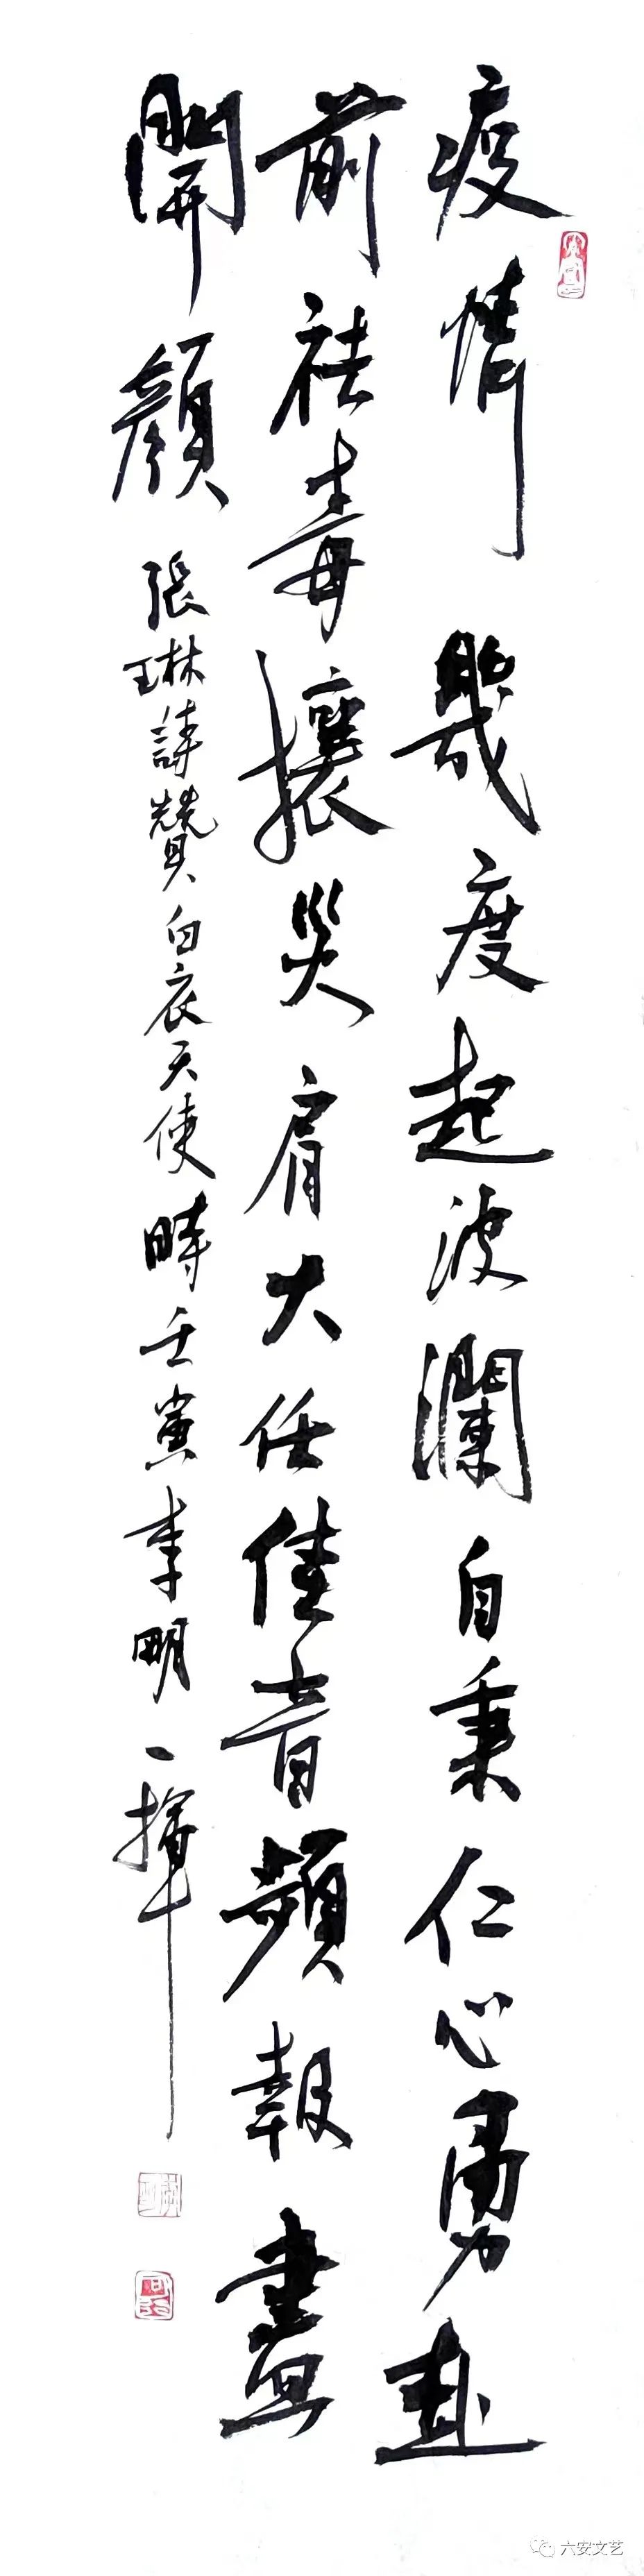 疫情幾度起波瀾自秉仁心勇赴
前祛毒攘災肩大任佳音頻報盡
開顏
張琳詩贊白衣天使時壬寅李明一揮
六安文艺